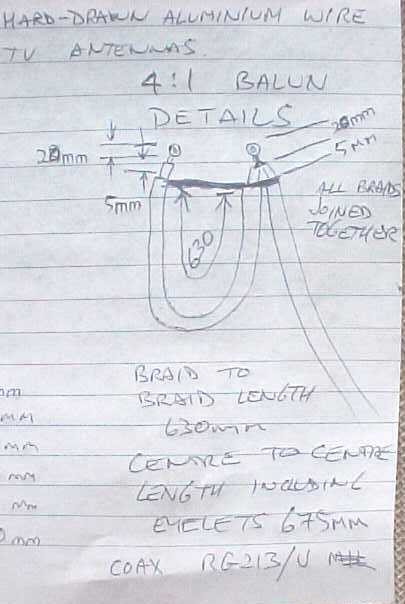 HARD-DRAWN ALUMINIUM WIRE
TV ANTENNAS.
4:1 BALUN
DETAILS
20mm
20mm
5mm
5mm
ALL BRAIDS
JOINED
TOGETHER
630
BRAID TO
BRAID LENGTH
630mm
CENTRE TO CENTRE
LENGTH INCLUDING
EYELETS 675MM
COAX RG213/U
mm
MM
mm
mm
mm
0mm